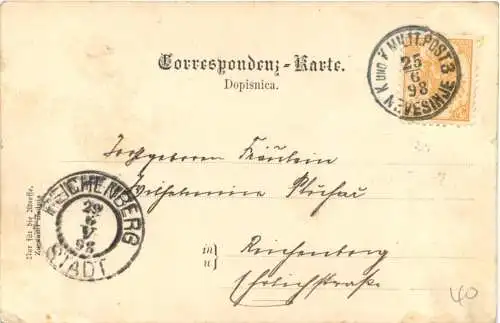 Correspondenz-Karte.
Dopisnica.
K UND K MILIT. POST 3
25
6
98
NEVESINJE
Hochgeboren Fräulein
Wilhelmine
Nur für die Adresse.
REICHENBERG
29
6
V
98
STADT
in
u
Reichenberg
Ehrlichstraße
40